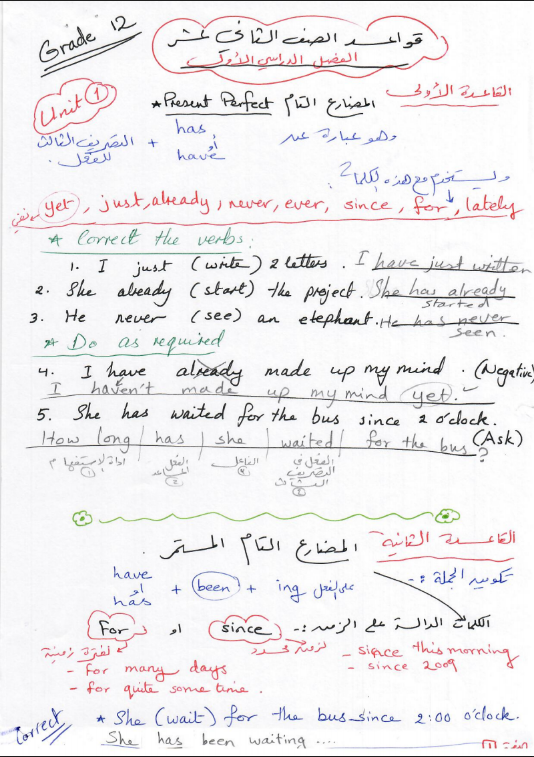 Grade 12
قواعد الصف الثاني عشر
الفصل الدراسي الأول
القاعدة الأولى
Unit 1
المضارع التام Present Perfect *
وهو عبارة عن has أو have + التصريف الثالث للفعل.
ويستخدم مع هذه الكلمات:
yet, just, already, never, ever, since, for, lately
* Correct the verbs:
1. I just (write) 2 letters. I have just written
2. She already (start) the project. She has already started
3. He never (see) an elephant. He has never seen.
* Do as required
4. I have already made up my mind. (Negative)
I haven't made up my mind yet.
5. She has waited for the bus since 2 o'clock. (Ask)
How long / has / she / waited / for the bus ?
أداة الاستفهام ① الفعل المساعد ② الفاعل ③ الفعل في التصريف الثالث
القاعدة الثانية المضارع التام المستمر.
تكوين الجملة :-
have أو has + been + ing على الفعل
الكلمات الدالة على الزمن :-
since او For
لفترة زمنية
- for many days
- for quite some time.
لزمن محدد
- since this morning
- since 2009
Correct
* She (wait) for the bus since 2:00 o'clock.
She has been waiting ....